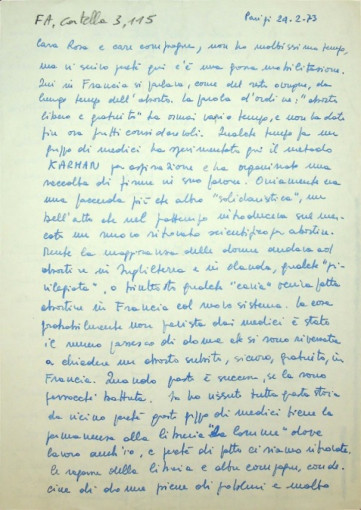 FA, cartella 3, 115
Parigi 21-2-73
Cara Rosa e care compagne, non ho moltissimo tempo,
ma vi scrivo perché qui c'è una grossa mobilitazione.
Qui in Francia si parlava, come del resto ovunque, da
lungo tempo dell'aborto. La parola d'ordine, "aborto
libero e gratuito" ha ormai vario tempo, e non ha dato
fin ora frutti considerevoli. Qualche tempo fa un
gruppo di medici ha sperimentato qui il metodo
KARMAN per aspirazione e ha organizzato una
raccolta di firme in suo favore. Ovviamente era
una faccenda più che altro "solidaristica", un
bell'atto che nel frattempo introduceva sul mer-
cato un nuovo ritrovato scientifico per abortire.
Mentre la maggioranza delle donne andava ad
abortire in Inghilterra e in Olanda, qualche "pri-
vilegiata", o piuttosto qualche "cavia" veniva fatta
abortire in Francia col nuovo sistema. La cosa
probabilmente non prevista dai medici è stato
il numero pazzesco di donne che si sono riversate
a chiedere un aborto subito, sicuro, gratuito, in
Francia. Quando poste è successo, se la sono
parecchi battuta. Io ho vissuto tutta questa storia
da vicino perché questo gruppo di medici tiene la
permanenza alla libreria "la Commune" dove
lavoro anch'io, e perché di fatto ci siamo ritrovate
le ragazze della libreria e altre compagne, con de-
cine di donne piene di problemi e molto